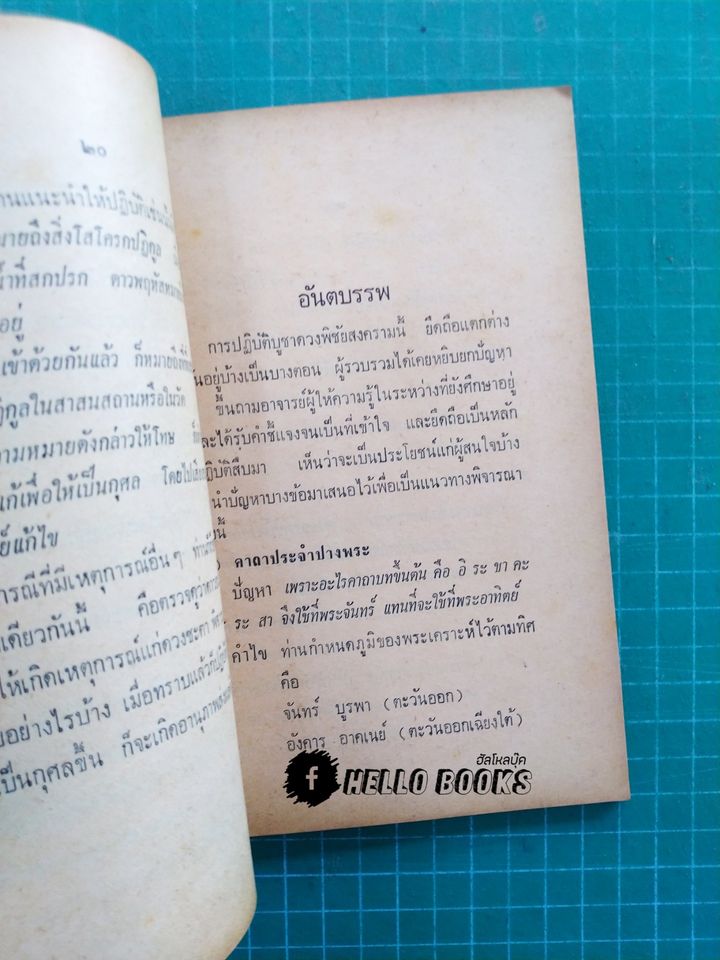 ๒๐
านแนะนำให้ปฏิบัติเช่น
มายถึงสิ่งโสโครกปฏิกูล
น้ำที่สกปรก ดาวพฤหัส
อยู่
เข้าด้วยกันแล้ว ก็หมายถึง
ฏิกูลในสาสนสถานหรือในวัด
ามหมายดังกล่าวให้โทษ
แก้เพื่อให้เป็นกุศล โดย
ย์แก้ไข
รณีที่มีเหตุการณ์อื่นๆ
เดียวกันนี้ คือตรวจดูว่า
ให้เกิดเหตุการณ์แก่ดวงชะตา
บอย่างไรบ้าง เมื่อทราบแล้วก็
เป็นกุศลขึ้น ก็จะเกิดอานุภาพ
อันตบรรพ
การปฏิบัติบูชาดวงพิชัยสงครามนี้ ยึดถือแตกต่าง
นอยู่บ้างเป็นบางตอน ผู้รวบรวมได้เคยหยิบยกปัญหา
ขึ้นถามอาจารย์ผู้ให้ความรู้ในระหว่างที่ยังศึกษาอยู่
ละได้รับคำชี้แจงจนเป็นที่เข้าใจ และยึดถือเป็นหลัก
ฏิบัติสืบมา เห็นว่าจะเป็นประโยชน์แก่ผู้สนใจบ้าง
นำปัญหาบางข้อมาเสนอไว้เพื่อเป็นแนวทางพิจารณา
นี้
คาถาประจำปางพระ
ปัญหา เพราะอะไรคาถาบทขึ้นต้น คือ อิ ระ ชา คะ
ระ สา จึงใช้ที่พระจันทร์ แทนที่จะใช้ที่พระอาทิตย์
คำไข ท่านกำหนดภูมิของพระเคราะห์ไว้ตามทิศ
คือ
จันทร์ บูรพา (ตะวันออก)
อังคาร อาคเนย์ (ตะวันออกเฉียงใต้)
ฮัลโหลบุ๊ค
f HELLO BOOKS